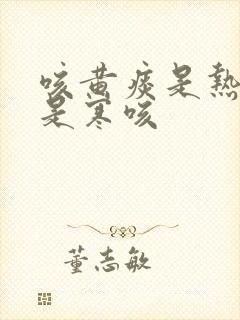 咳黄痰是熱
是寒咳
董志敏